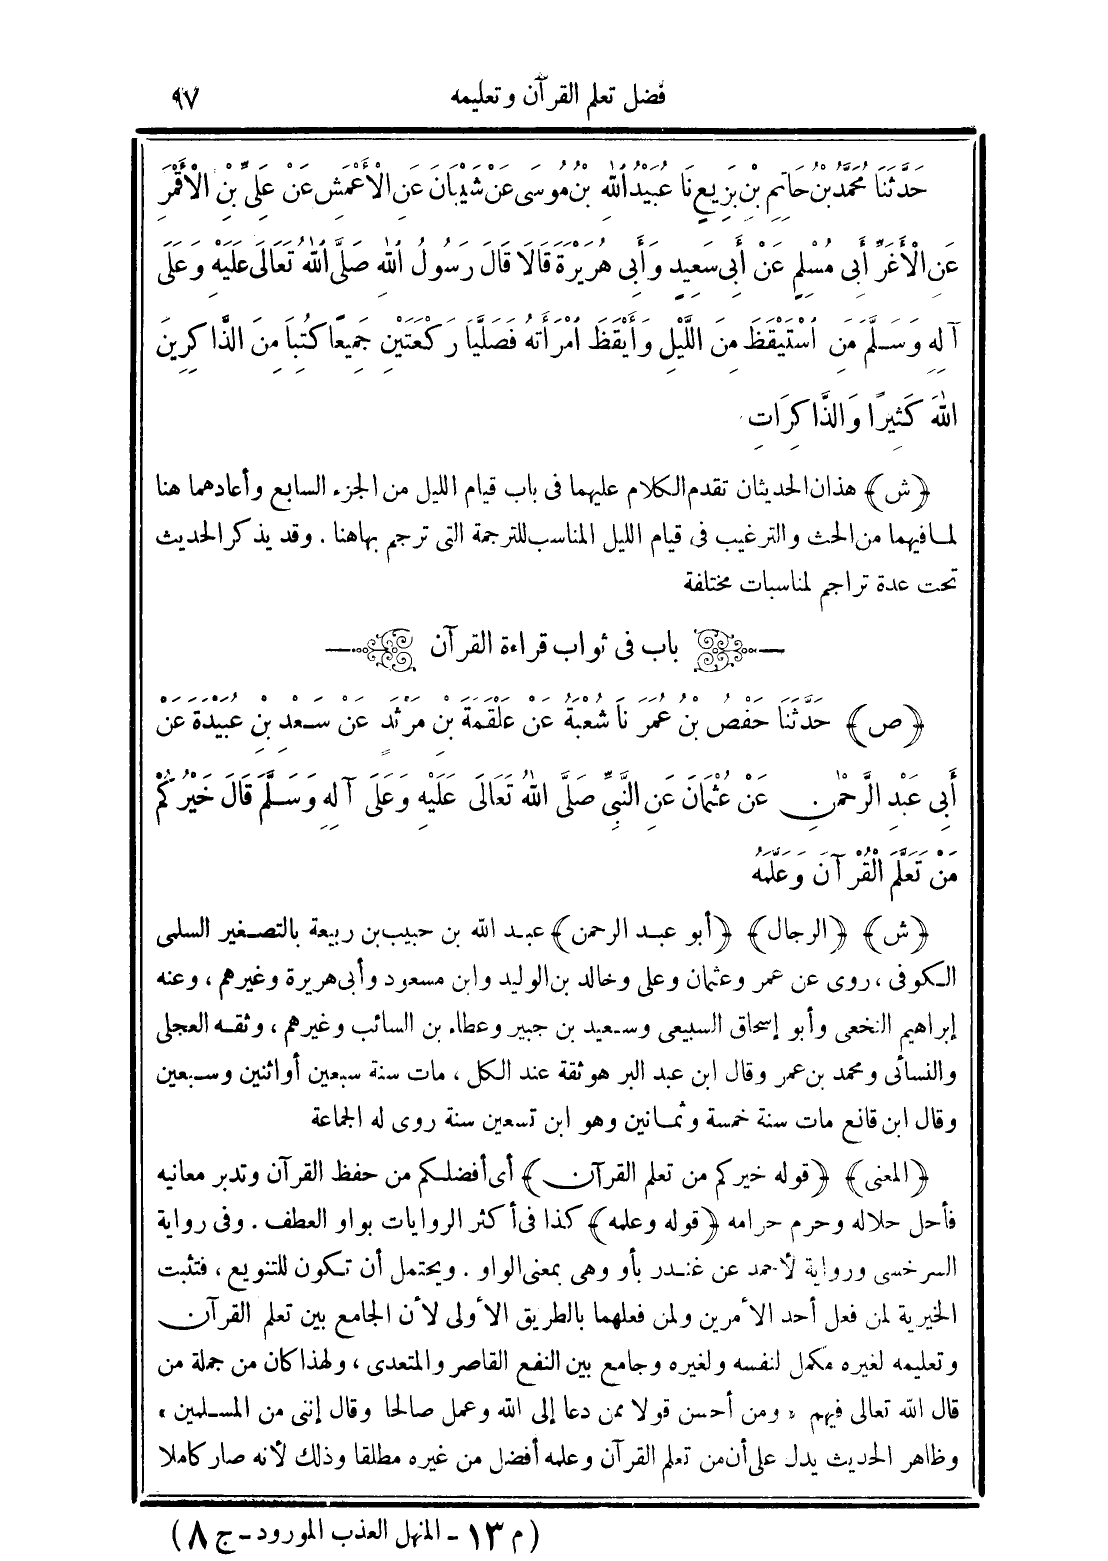 فضل تعلم القرآن وتعليمه ٩٧
حَدَّثَنَا مُحَمَّدُ بْنُ حَاتِمِ بْنِ بَزِيعٍ نَا عُبَيْدُ اللهِ بْنُ مُوسَى عَنْ شَيْبَانَ عَنِ الْأَعْمَشِ عَنْ عَلِيِّ بْنِ الْأَقْمَرِ
عَنِ الْأَغَرِّ أَبِي مُسْلِمٍ عَنْ أَبِي سَعِيدٍ وَأَبِي هُرَيْرَةَ قَالَا قَالَ رَسُولُ اللهِ صَلَّى اللهُ تَعَالَى عَلَيْهِ وَعَلَى
آلِهِ وَسَلَّمَ مَنِ اسْتَيْقَظَ مِنَ اللَّيْلِ وَأَيْقَظَ امْرَأَتَهُ فَصَلَّيَا رَكْعَتَيْنِ جَمِيعًا كُتِبَا مِنَ الذَّاكِرِينَ
اللهَ كَثِيرًا وَالذَّاكِرَاتِ
﴿ش﴾ هذان الحديثان تقدم الكلام عليهما فى باب قيام الليل من الجزء السابع وأعادهما هنا
لما فيهما من الحث والترغيب فى قيام الليل المناسب للترجمة التى ترجم بها هنا . وقد يذكر الحديث
تحت عدة تراجم لمناسبات مختلفة
باب فى ثواب قراءة القرآن
﴿ص﴾ حَدَّثَنَا حَفْصُ بْنُ عُمَرَ نَا شُعْبَةُ عَنْ عَلْقَمَةَ بْنِ مَرْثَدٍ عَنْ سَعْدِ بْنِ عُبَيْدَةَ عَنْ
أَبِي عَبْدِ الرَّحْمٰنِ عَنْ عُثْمَانَ عَنِ النَّبِيِّ صَلَّى اللهُ تَعَالَى عَلَيْهِ وَعَلَى آلِهِ وَسَلَّمَ قَالَ خَيْرُكُمْ
مَنْ تَعَلَّمَ الْقُرْآنَ وَعَلَّمَهُ
﴿ش﴾ ﴿الرجال﴾ ﴿أبو عبد الرحمن﴾ عبد الله بن حبيب بن ربيعة بالتصغير السلمى
الكوفى ، روى عن عمر وعثمان وعلى وخالد بن الوليد وابن مسعود وأبى هريرة وغيرهم ، وعنه
إبراهيم النخعى وأبو إسحاق السبيعى وسعيد بن جبير وعطاء بن السائب وغيرهم ، وثقه العجلى
والنسائى ومحمد بن عمر وقال ابن عبد البر هو ثقة عند الكل ، مات سنة سبعين أواثنين وسبعين
وقال ابن قانع مات سنة خمسة وثمانين وهو ابن تسعين سنة روى له الجماعة
﴿المعنى﴾ ﴿قوله خيركم من تعلم القرآن﴾ أى أفضلكم من حفظ القرآن وتدبر معانيه
فأحل حلاله وحرم حرامه ﴿قوله وعلمه﴾ كذا فى أكثر الروايات بواو العطف . وفى رواية
السرخسى ورواية لأحمد عن غندر بأو وهى بمعنى الواو . ويحتمل أن تكون للتنويع ، فتثبت
الخيرية لمن فعل أحد الأمرين ولمن فعلهما بالطريق الأولى لأن الجامع بين تعلم القرآن
وتعليمه لغيره مكمل لنفسه ولغيره وجامع بين النفع القاصر والمتعدى ، ولهذا كان من جملة من
قال الله تعالى فيهم « ومن أحسن قولا ممن دعا إلى الله وعمل صالحا وقال إننى من المسلمين »
وظاهر الحديث يدل على أن من تعلم القرآن وعلمه أفضل من غيره مطلقا وذلك لأنه صار كاملا
(م ١٣ - المنهل العذب المورود - ج ٨)